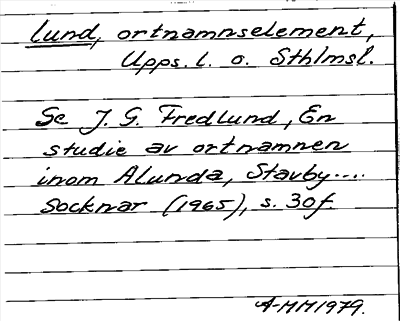 lund, ortnamnselement,
Upps. l. o. Sthlmsl.
Se J. G. Fredlund, En
studie av ortnamnen
inom Alunda, Stavby....
socknar (1965), s. 30f.
A-MM1979.